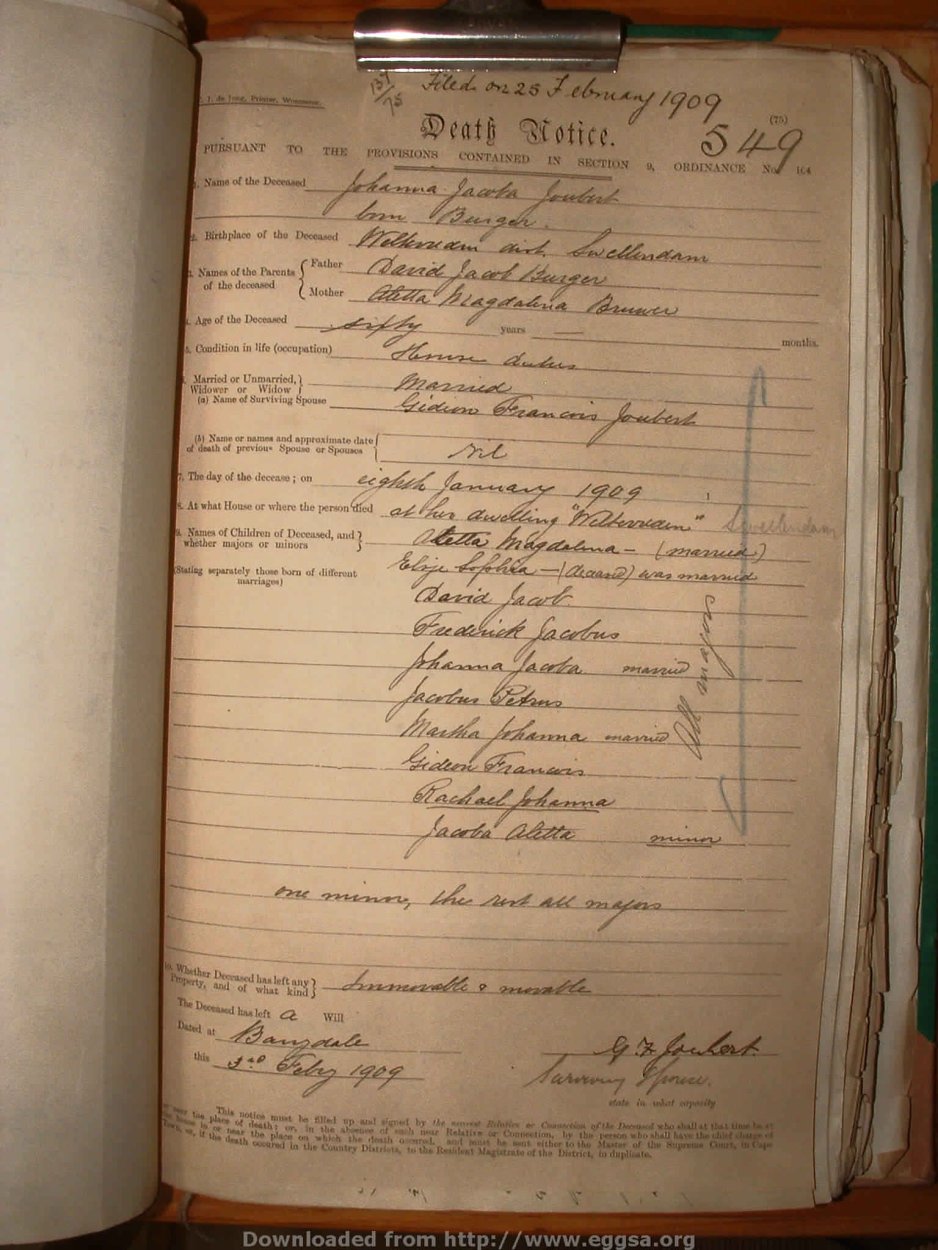 137/75 Filed on 25 February 1909
J. de Jong, Printer, Worcester.
(75)
Death Notice. 549
PURSUANT TO THE PROVISIONS CONTAINED IN SECTION 9, ORDINANCE No. 104
1. Name of the Deceased Johanna Jacoba Joubert
born Burger.
2. Birthplace of the Deceased Weltevreden dist. Swellendam
3. Names of the Parents of the deceased { Father David Jacob Burger
Mother Aletta Magdalena Bruwer
4. Age of the Deceased years — months.
5. Condition in life (occupation) House duties
6. Married or Unmarried, Widower or Widow } Married
(a) Name of Surviving Spouse Gideon Francois Joubert
(b) Name or names and approximate date of death of previous Spouse or Spouses { Nil
7. The day of the decease; on eighth January 1909
8. At what House or where the person died at her dwelling "Weltevreden" Swellendam
9. Names of Children of Deceased, and whether majors or minors } Aletta Magdalena - (married)
(Stating separately those born of different marriages) Sophia - was married
David Jacob
Frederick Jacobus
Johanna Jacoba married
Jacobus Petrus
Martha Johanna married
Gideon Francois
Rachael Johanna
Jacoba Aletta minor
All majors
one minor, the rest all majors
10. Whether Deceased has left any Property, and of what kind } Immovable & movable
The Deceased has left a Will
Dated at
this 3rd Feby 1909
G. F. Joubert
Surviving Spouse.
state in what capacity
This notice must be filled up and signed by the nearest Relative or Connection of the Deceased who shall at that time be at
or near the place of death; or, in the absence of such near Relative or Connection, by the person who shall have the chief charge of
the house in or near the place on which the death occured, and must be sent either to the Master of the Supreme Court, in Cape
Town, or, if the death occured in the Country Districts, to the Resident Magistrate of the District, in duplicate.
Downloaded from http://www.eggsa.org